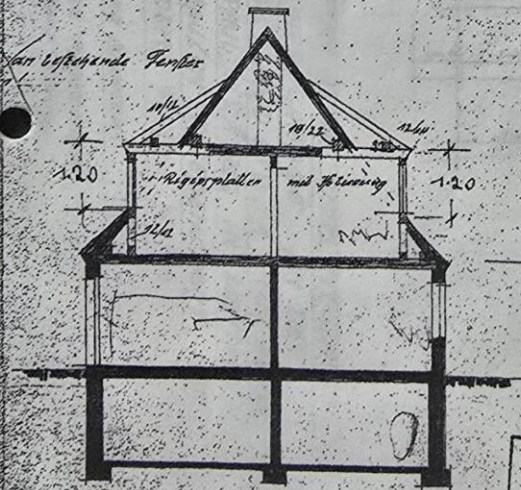 an bestehende Fenster
10/12
18/22
12/14
1.20
Rigipsplatten mit Isolierung
1.20
12/12